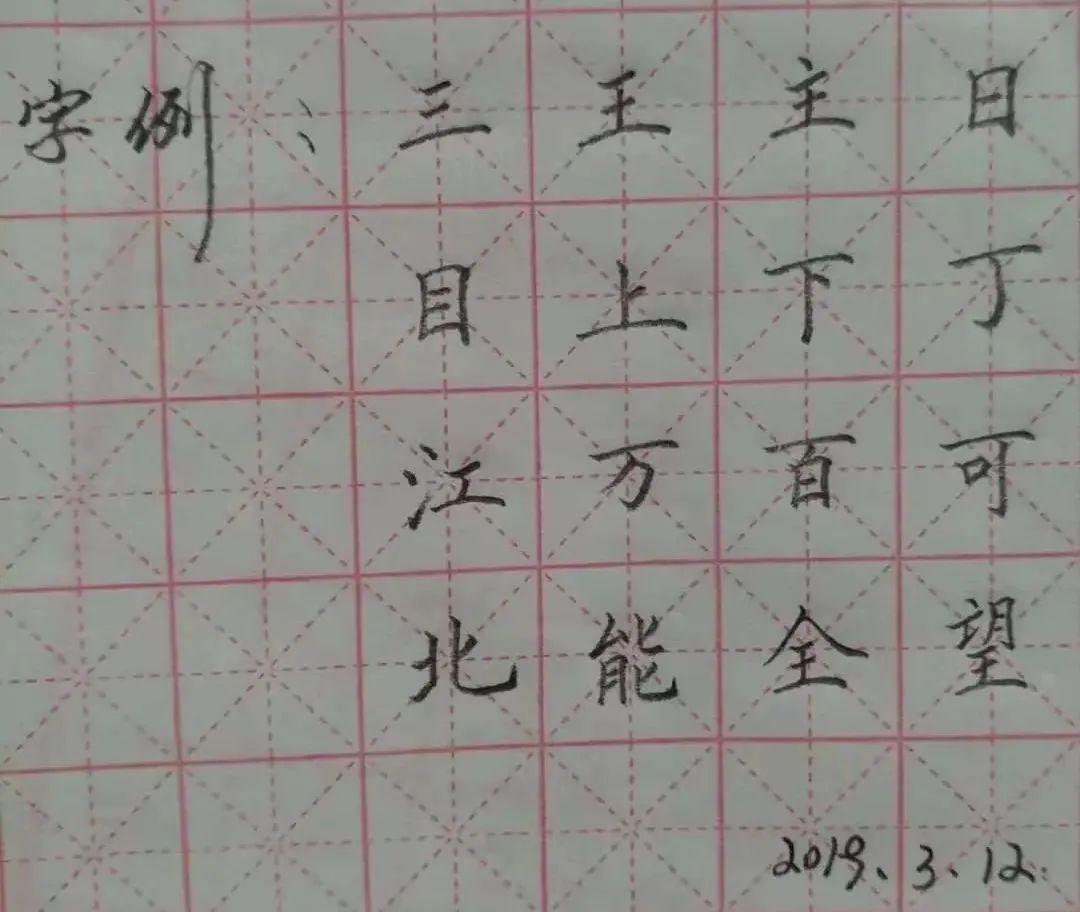 字例：三王主日
目上下丁
江万百可
北能全望
2019.3.12.